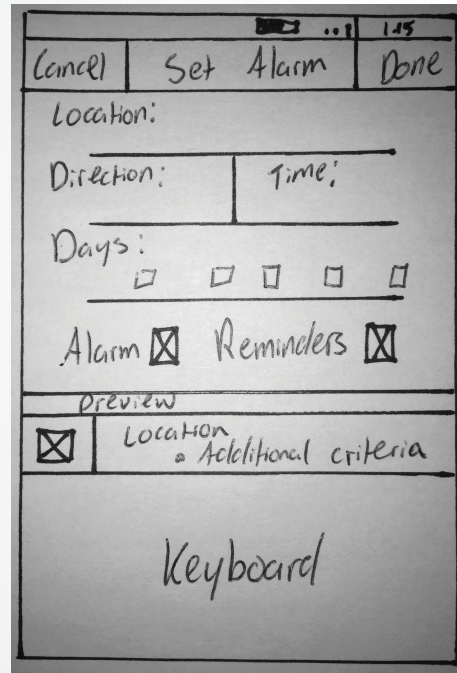 1:15
Cancel Set Alarm Done
Location:
Direction: Time:
Days:
Alarm Reminders
preview
Location
Additional criteria
Keyboard